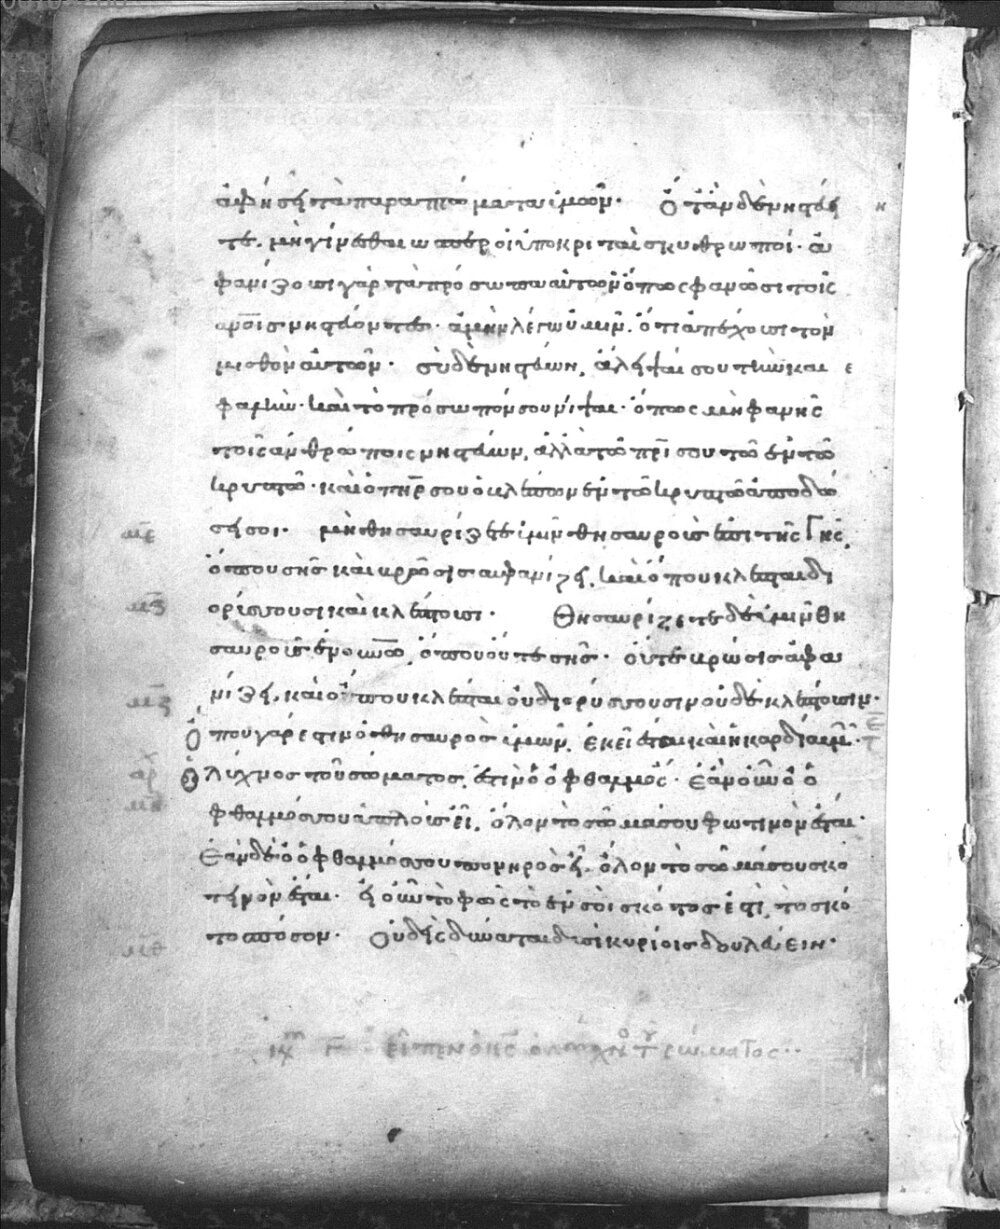 ἀφήσει τὰ παραπτώματα ὑμῶν· Ὅταν δὲ νηστεύη
τε, μὴ γίνεσθαι ὥσπερ οἱ ὑποκριταὶ σκυθρωποί· ἀ
φανίζουσι γὰρ τὰ πρόσωπα αὐτῶν ὅπως φανῶσι τοῖς
ἀνοις νηστεύοντες· ἀμὴν λέγω ὑμῖν, ὅτι ἀπέχουσι τὸν
μισθὸν αὐτῶν· σὺ δὲ νηστεύων, ἄλειψαί σου τὴν και
φαλὴν· καὶ τὸ πρόσωπόν σου νίψαι· ὅπως μὴ φανῆς
τοῖς ἀνθρώποις νηστεύων, ἀλλὰ τῶ πρι σου τῶ ἐν τῶ
κρυπτῶ· καὶ ὁ πηρ σου ὁ βλέπων ἐν τῶ κρυπτῶ ἀποδώ
σει σοι· μὴ θησαυρίζετε ὑμῖν θησαυροὺς ἐπὶ τῆς γῆς,
ὅπου σὴς καὶ βρῶσις ἀφανίζει, καὶ ὅπου κλέπται δι
ορύττουσι καὶ κλέπτουσι· Θησαυρίζετε δὲ ὑμῖν θη
σαυροὺς ἐν οὐνῶ, ὅπου οὔτε σὴς· οὔτε βρῶσις ἀφα
νίζει, καὶ ὅπου κλέπται οὐ διορύττουσιν οὐδὲ κλέπτουσιν·
Ὅπου γάρ ἐστιν ὁ θησαυρὸς ὑμῶν, ἐκεῖ ἔσται καὶ ἡ καρδία ὑμῶν·
Ὁ λύχνος τοῦ σώματος, ἐστὶν ὁ ὀφθαλμός· Ἐὰν οὖν ὁ ὀ
φθαλμός σου ἁπλοῦς ἦ, ὅλον τὸ σῶμά σου φωτινὸν ἔσται·
Ἐὰν δὲ ὁ ὀφθαλμός σου πονηρὸς ἦ, ὅλον τὸ σῶμά σου σκο
τεινὸν ἔσται· εἰ οὖν τὸ φῶς τὸ ἐν σοὶ σκότος ἐστὶ, τὸ σκό
τος πόσον· Οὐδεὶς δύναται δυσὶ κυρίοις δουλεύειν·
εἶπεν ὁ κς ὁ λύχν τ σώματος··